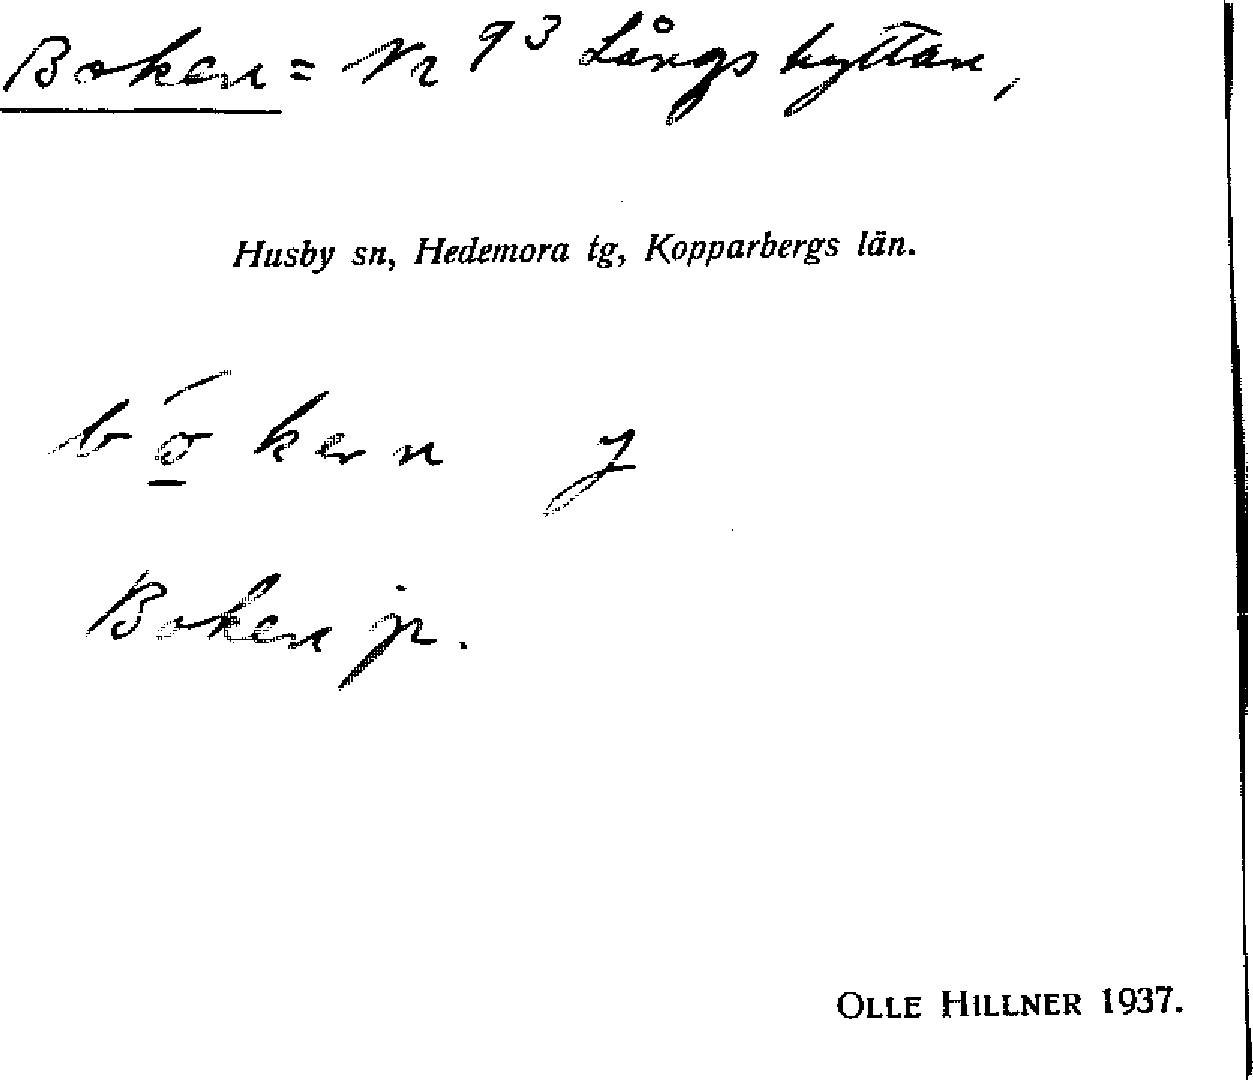 Boken = Nr 93 Långshyttan,
Husby sn, Hedemora tg, Kopparbergs län.
bó̱ken
Boken jr.
OLLE HILLNER 1937.